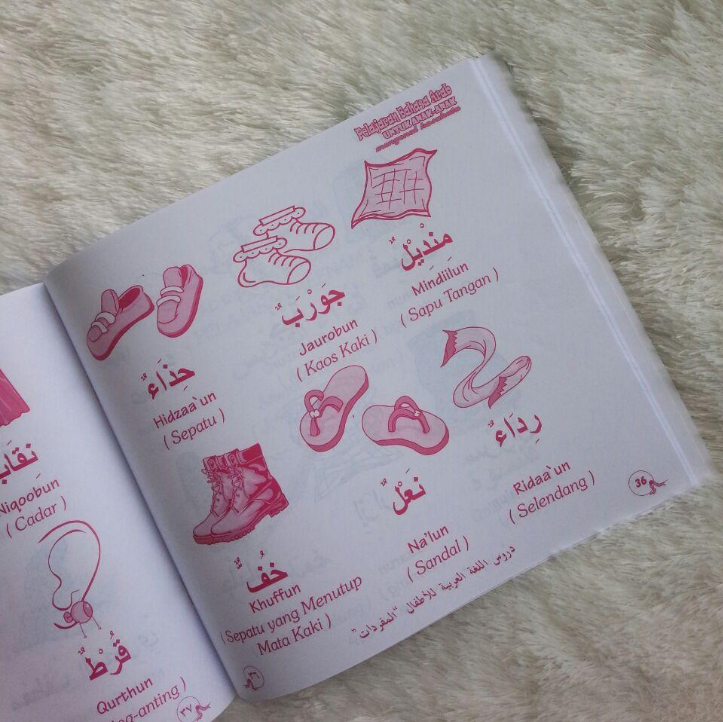 Pelajaran Bahasa Arab
UNTUK ANAK-ANAK
مِنْدِيْلٌ
Mindiilun
( Sapu Tangan )
جَوْرَبٌ
Jaurobun
( Kaos Kaki )
حِذَاءٌ
Hidzaa`un
( Sepatu )
رِدَاءٌ
Ridaa`un
( Selendang )
نَعْلٌ
Na'lun
( Sandal )
خُفٌّ
Khuffun
( Sepatu yang Menutup
Mata Kaki )
36
دروس اللغة العربية للأطفال "المفردات"
٣٦
Niqoobun
( Cadar )
قُرْطٌ
Qurthun
٣٧